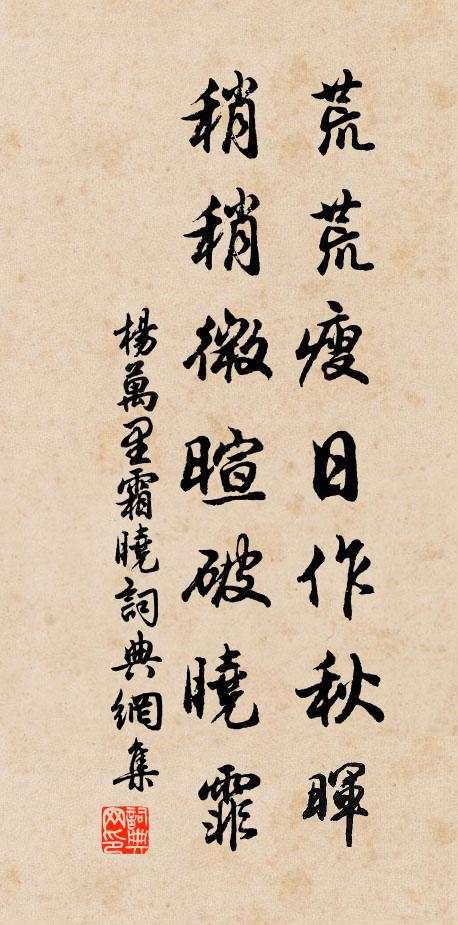 荒荒瘦日作秋暉
稍稍微暄破曉霏
楊萬里霜曉詞典網集
詞典网印